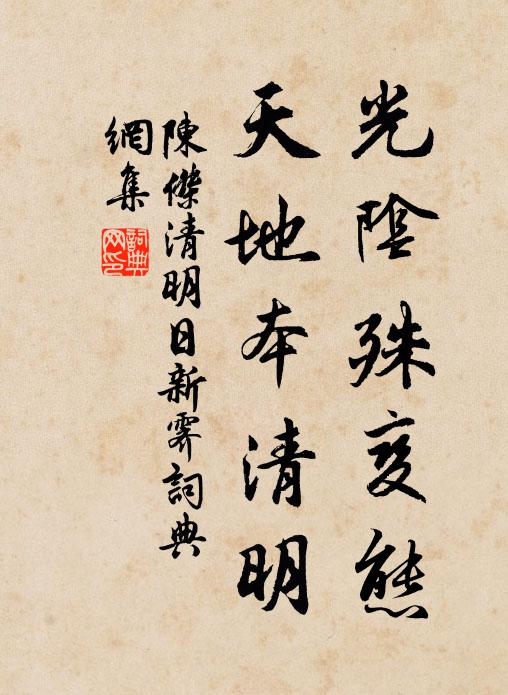 光陰殊变態
天地本清明
陳傑清明日新霽詞典
網集
詞典
网印